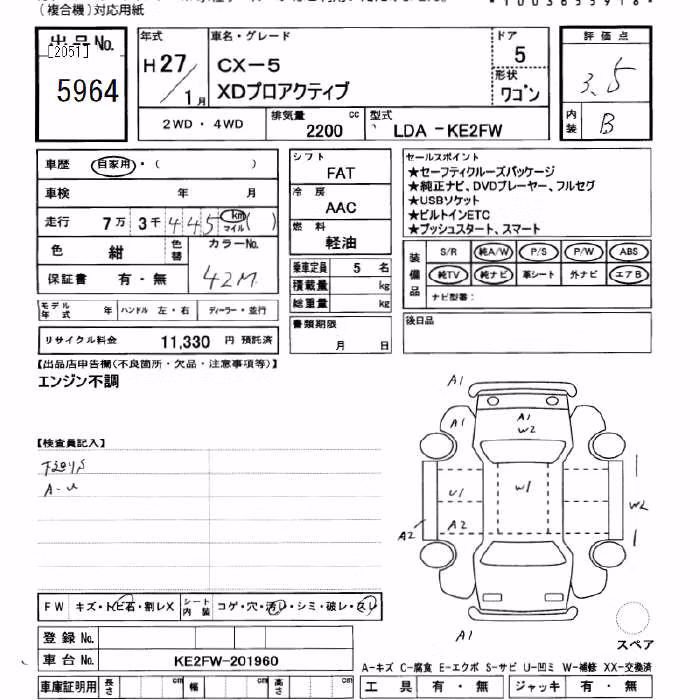 (複合機)対応用紙
出品No.
[2051]
5964
年式
H27/1月
車名・グレード
CX-5
XDプロアクティブ
ドア
5
形状
ワゴン
評価点
3.5
内装
B
2WD・4WD
排気量
2200
cc
型式
LDA -KE2FW
車歴
自家用・( )
車検 年 月
走行 7万 3千 445 km マイル ( )
色 紺
色替
カラーNo.
42M
保証書 有・無
モデル年式 年
ハンドル 左・右
ディーラー・並行
リサイクル料金 11,330 円 預託済
シフト
FAT
冷房
AAC
燃料
軽油
乗車定員 5 名
積載量 kg
総重量 kg
書類期限
月 日
セールスポイント
★セーフティクルーズパッケージ
★純正ナビ、DVDプレーヤー、フルセグ
★USBソケット
★ビルトインETC
★プッシュスタート、スマート
装備品
S/R 純A/W P/S P/W ABS
純TV 純ナビ 革シート 外ナビ エアB
ナビ型番:
後日品
【出品店申告欄(不良箇所・欠品・注意事項等)】
エンジン不調
【検査員記入】
A1
A1
A1
W2
U1
W1
A2
A2
W2
A1
スペア
FW キズ・トビ石・割レX
シート内装 コゲ・穴・汚レ・シミ・破レ・スレ
登録No.
車台No. KE2FW-201960
車庫証明用 長さ cm 幅 cm 高さ cm
A-キズ C-腐食 E-エクボ S-サビ U-凹ミ W-補修 XX-交換済
工具 有・無 ジャッキ 有・無